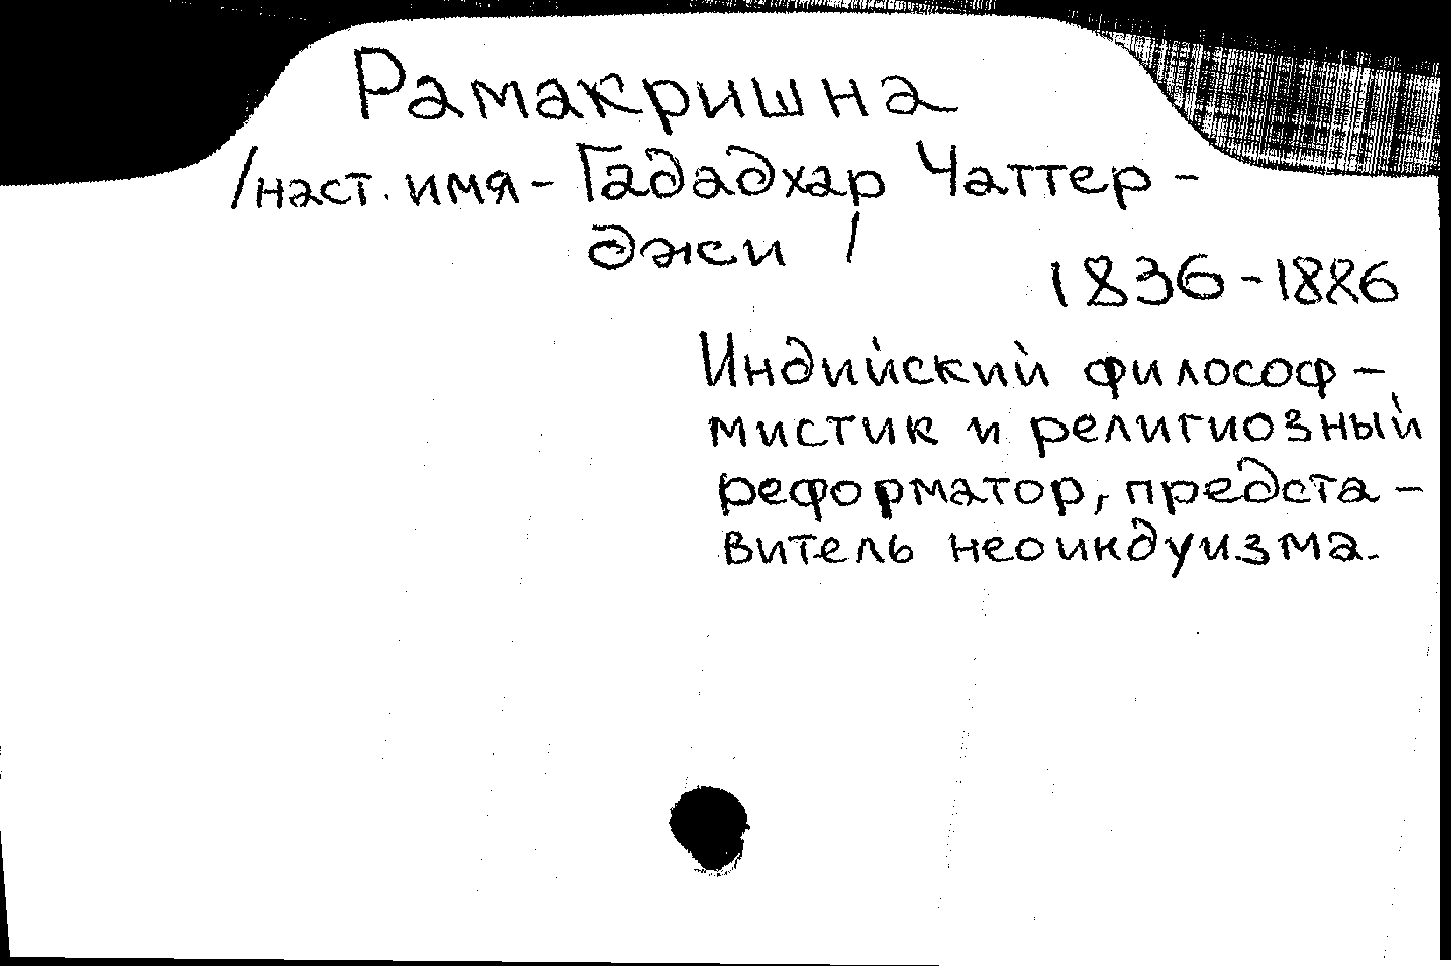 Рамакришна
/наст. имя - Гададхар Чаттер-
джи /
1836-1886
Индийский философ-
мистик и религиозный
реформатор, предста-
витель неоиндуизма.